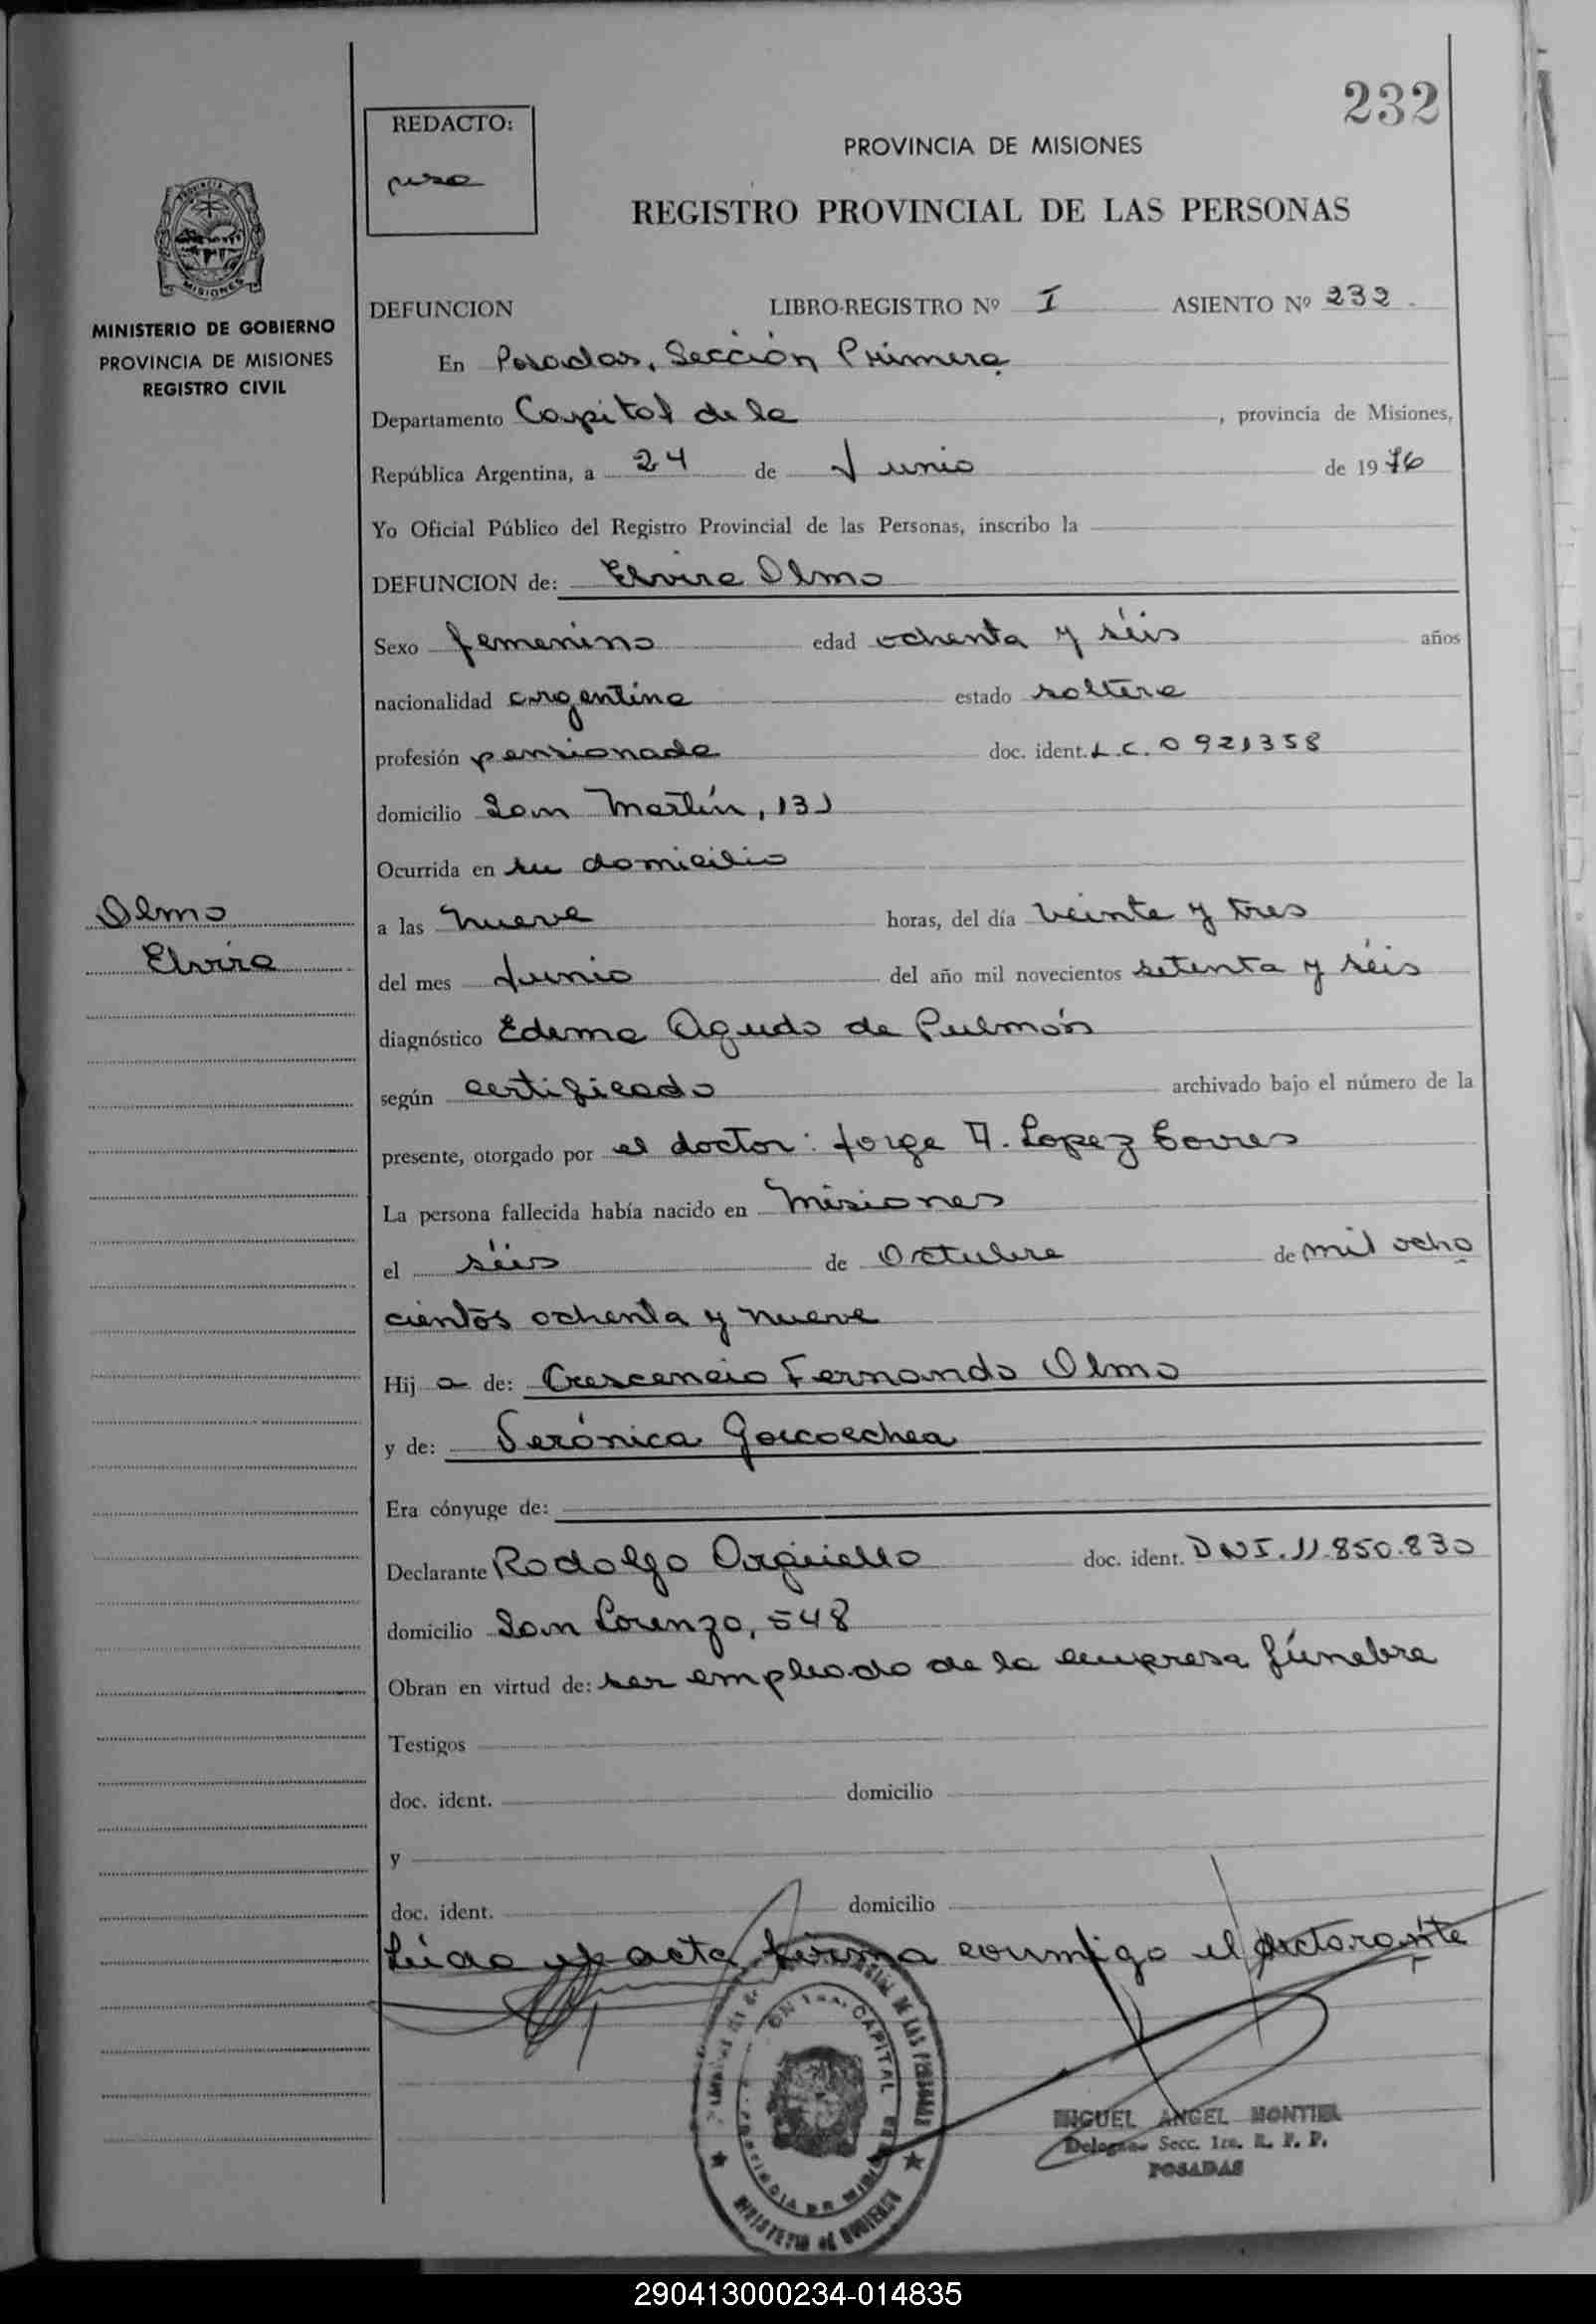 232
REDACTO:
PROVINCIA DE MISIONES
REGISTRO PROVINCIAL DE LAS PERSONAS
MISIONES
MINISTERIO DE GOBIERNO
PROVINCIA DE MISIONES
REGISTRO CIVIL
DEFUNCION LIBRO-REGISTRO Nº I ASIENTO Nº 232.
En Posadas, Sección Primera
Departamento Capital de la , provincia de Misiones,
República Argentina, a 24 de Junio de 1976
Yo Oficial Público del Registro Provincial de las Personas, inscribo la
DEFUNCION de: Elvira Olmo
Sexo femenino edad ochenta y séis años
nacionalidad argentina estado soltera
profesión pensionada doc. ident. L.C. 0921358
domicilio San Martín, 131
Ocurrida en su domicilio
Olmo
Elvira
a las nueve horas, del día veinte y tres
del mes Junio del año mil novecientos setenta y séis
diagnóstico Edema Agudo de Pulmón
según certificado archivado bajo el número de la
presente, otorgado por el doctor: Jorge A. Lopez
La persona fallecida había nacido en Misiones
el séis de Octubre de mil ocho
cientos ochenta y nueve
Hij a de: Crescencio Fernando Olmo
y de: Verónica Goicoechea
Era cónyuge de:
Declarante Rodolfo Orgüello doc. ident. DNI. 11.850.830
domicilio San Lorenzo, 548
Obran en virtud de: ser empleado de la empresa fúnebre
Testigos
doc. ident. domicilio
y
doc. ident. domicilio
Leída el acta firma conmigo el declarante
CAPITAL
DE LAS PERSONAS
MIGUEL ANGEL MONTIEL
Delegado Secc. 1ra. R. P. P.
POSADAS
290413000234-014835